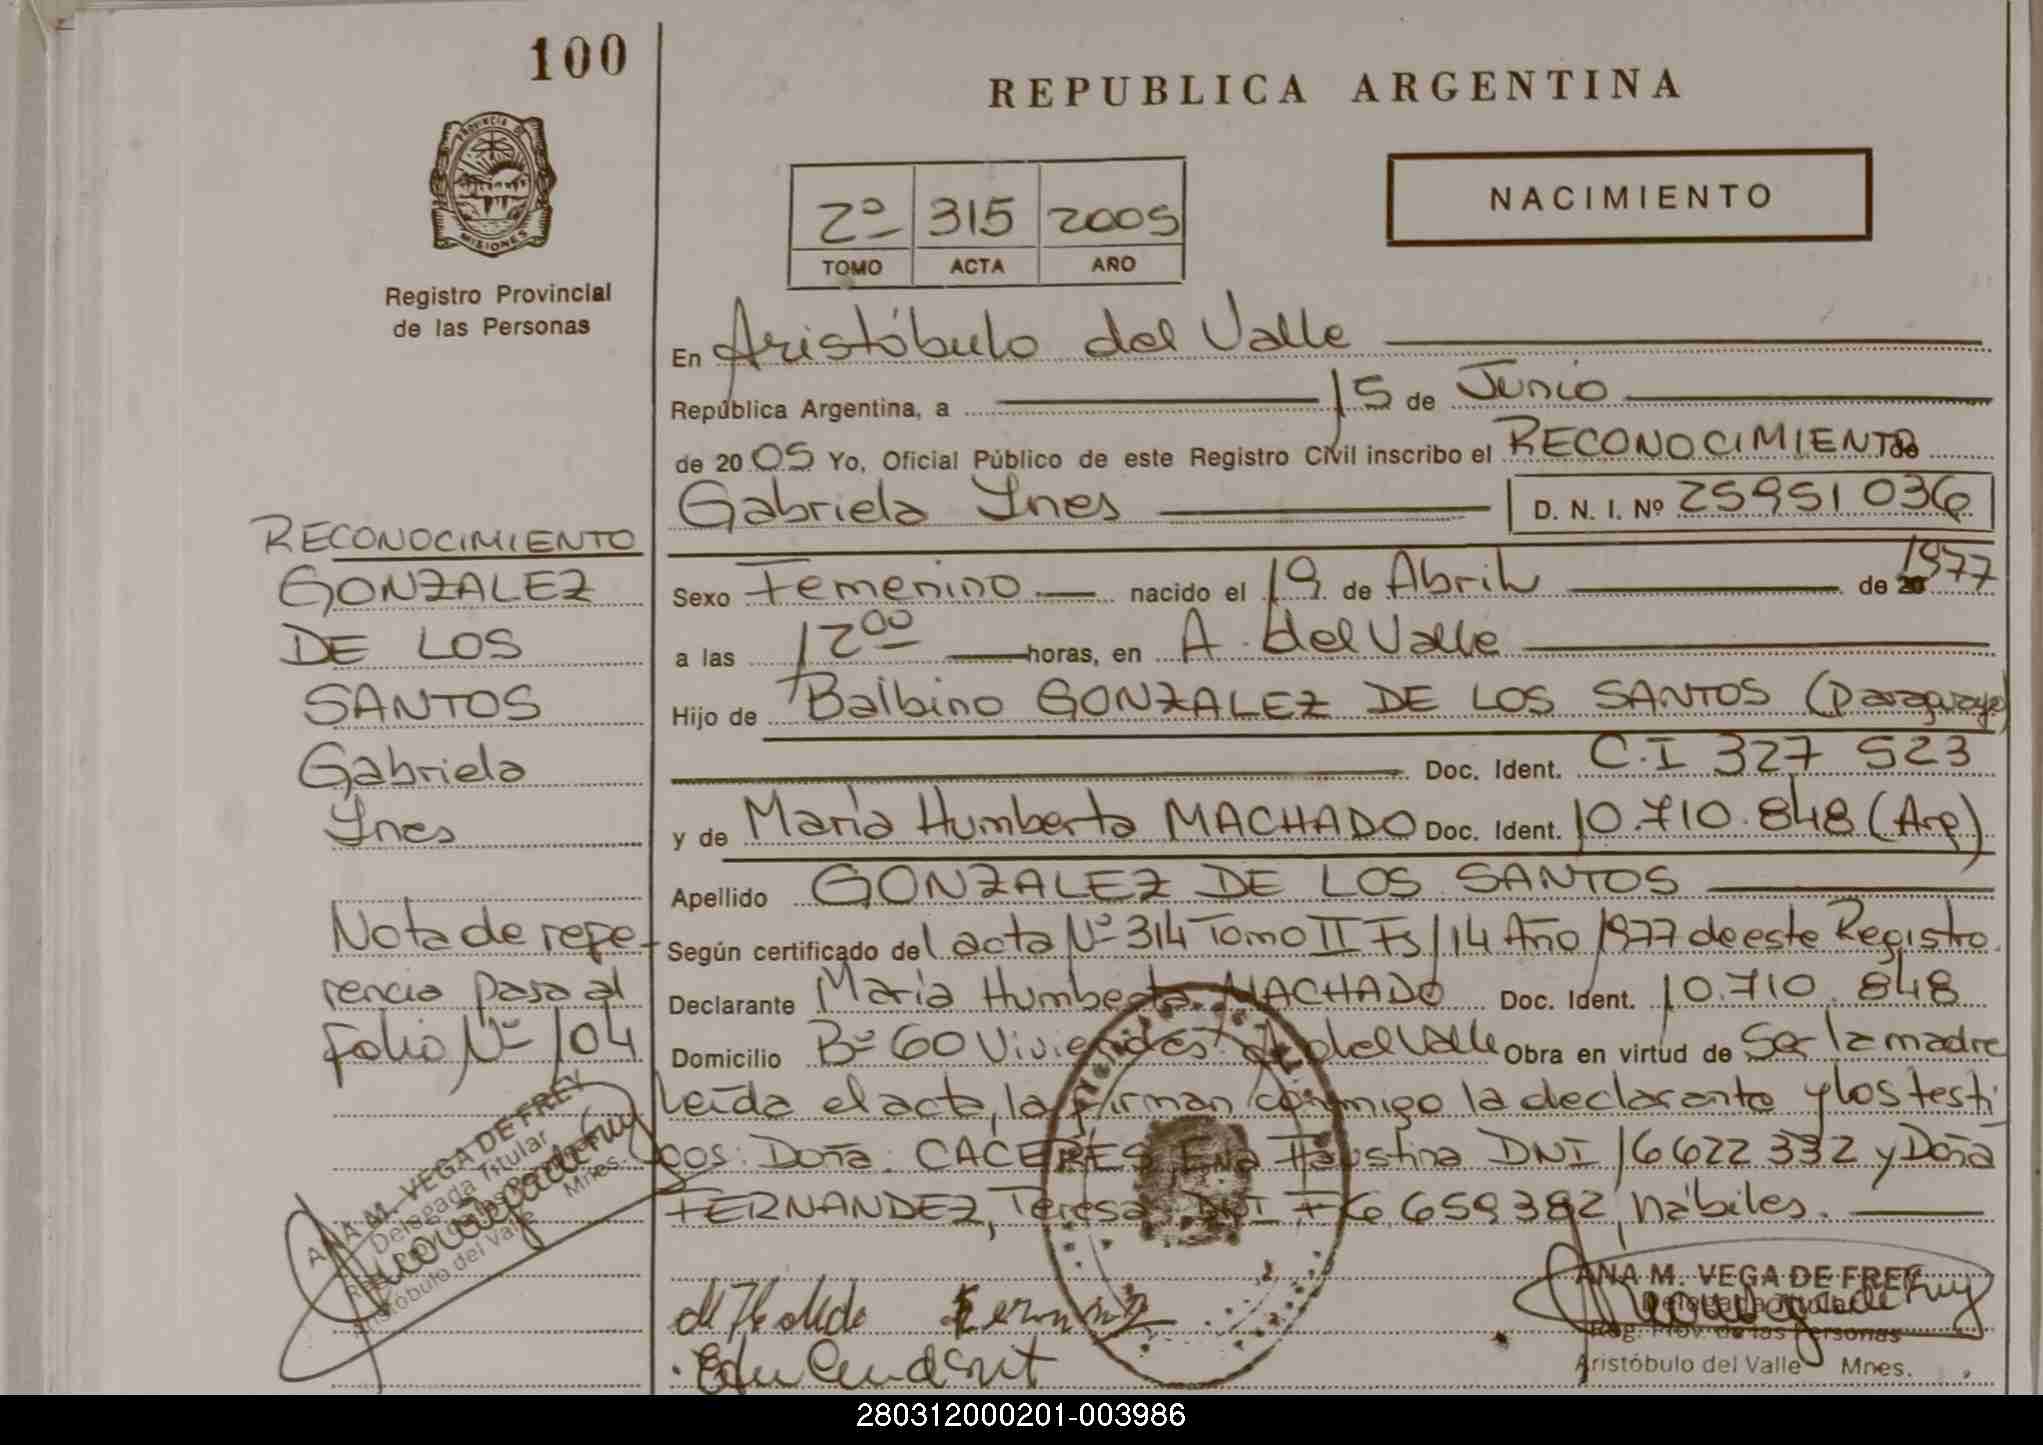 100
REPUBLICA ARGENTINA
PROVINCIA DE
MISIONES
Registro Provincial
de las Personas
NACIMIENTO
2º 315 2005
TOMO ACTA AÑO
En Aristóbulo del Valle
República Argentina, a 15 de Junio
de 2005 Yo, Oficial Público de este Registro Civil inscribo el RECONOCIMIENTO de
Gabriela Ynes D. N. I. Nº 25951036
Sexo Femenino nacido el 19 de Abril de 20 1977
a las 12 00 horas, en A. del Valle
Hijo de Balbino GONZALEZ DE LOS SANTOS (Paraguayo)
Doc. Ident. C.I 327 523
y de Maria Humberta MACHADO Doc. Ident. 10.710.848 (Arg)
Apellido GONZALEZ DE LOS SANTOS
Según certificado del acta Nº 314 Tomo II Fs 114 Año 1977 de este Registro.
Declarante María Humberta MACHADO Doc. Ident. 10.710.848
Domicilio Bº 60 Viviendas. A. del Valle Obra en virtud de Ser la madre
Leída el acta, la firman conmigo la declarante y los testi
gos: Doña: CACERES, Ena Faustina DNI 16622332 y Doña
FERNANDEZ, Teresa DNI F6.659.382, hábiles.
RECONOCIMIENTO
GONZALEZ
DE LOS
SANTOS
Gabriela
Ynes
Nota de refe-
rencia pasa al
Folio Nº 104
ANA M. VEGA DE FREY
Delegada Titular
Reg. Prov. de las Personas
Aristóbulo del Valle Mnes.
ANA M. VEGA DE FREY
Delegada Titular
Reg. Prov. de las Personas
Aristóbulo del Valle Mnes.
280312000201-003986